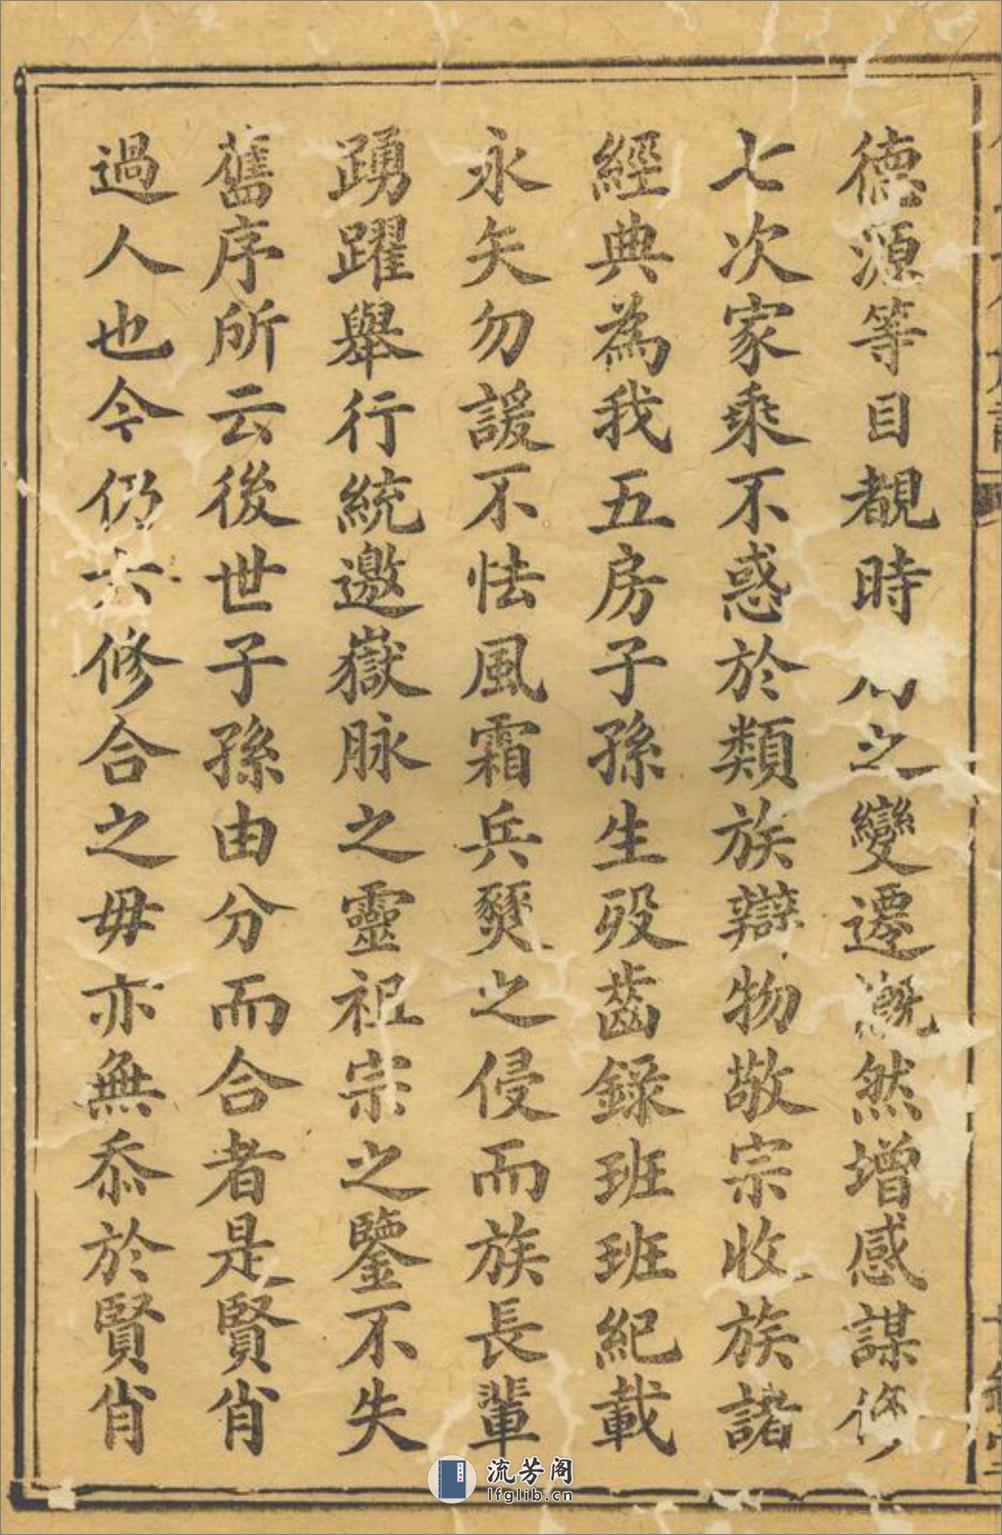 德源等目覩時局之變遷慨然增感謀修
七次家乘不惑於類族辯物敬宗收族諸
經典為我五房子孫生歿齒錄班班紀載
永矢勿諼不怯風霜兵燹之侵而族長輩
踴躍舉行統邀嶽脉之靈祖宗之鑒不失
舊序所云後世子孫由分而合者是賢肖
過人也今仍六修合之毋亦無忝於賢肖
流芳阁
lfglib.cn